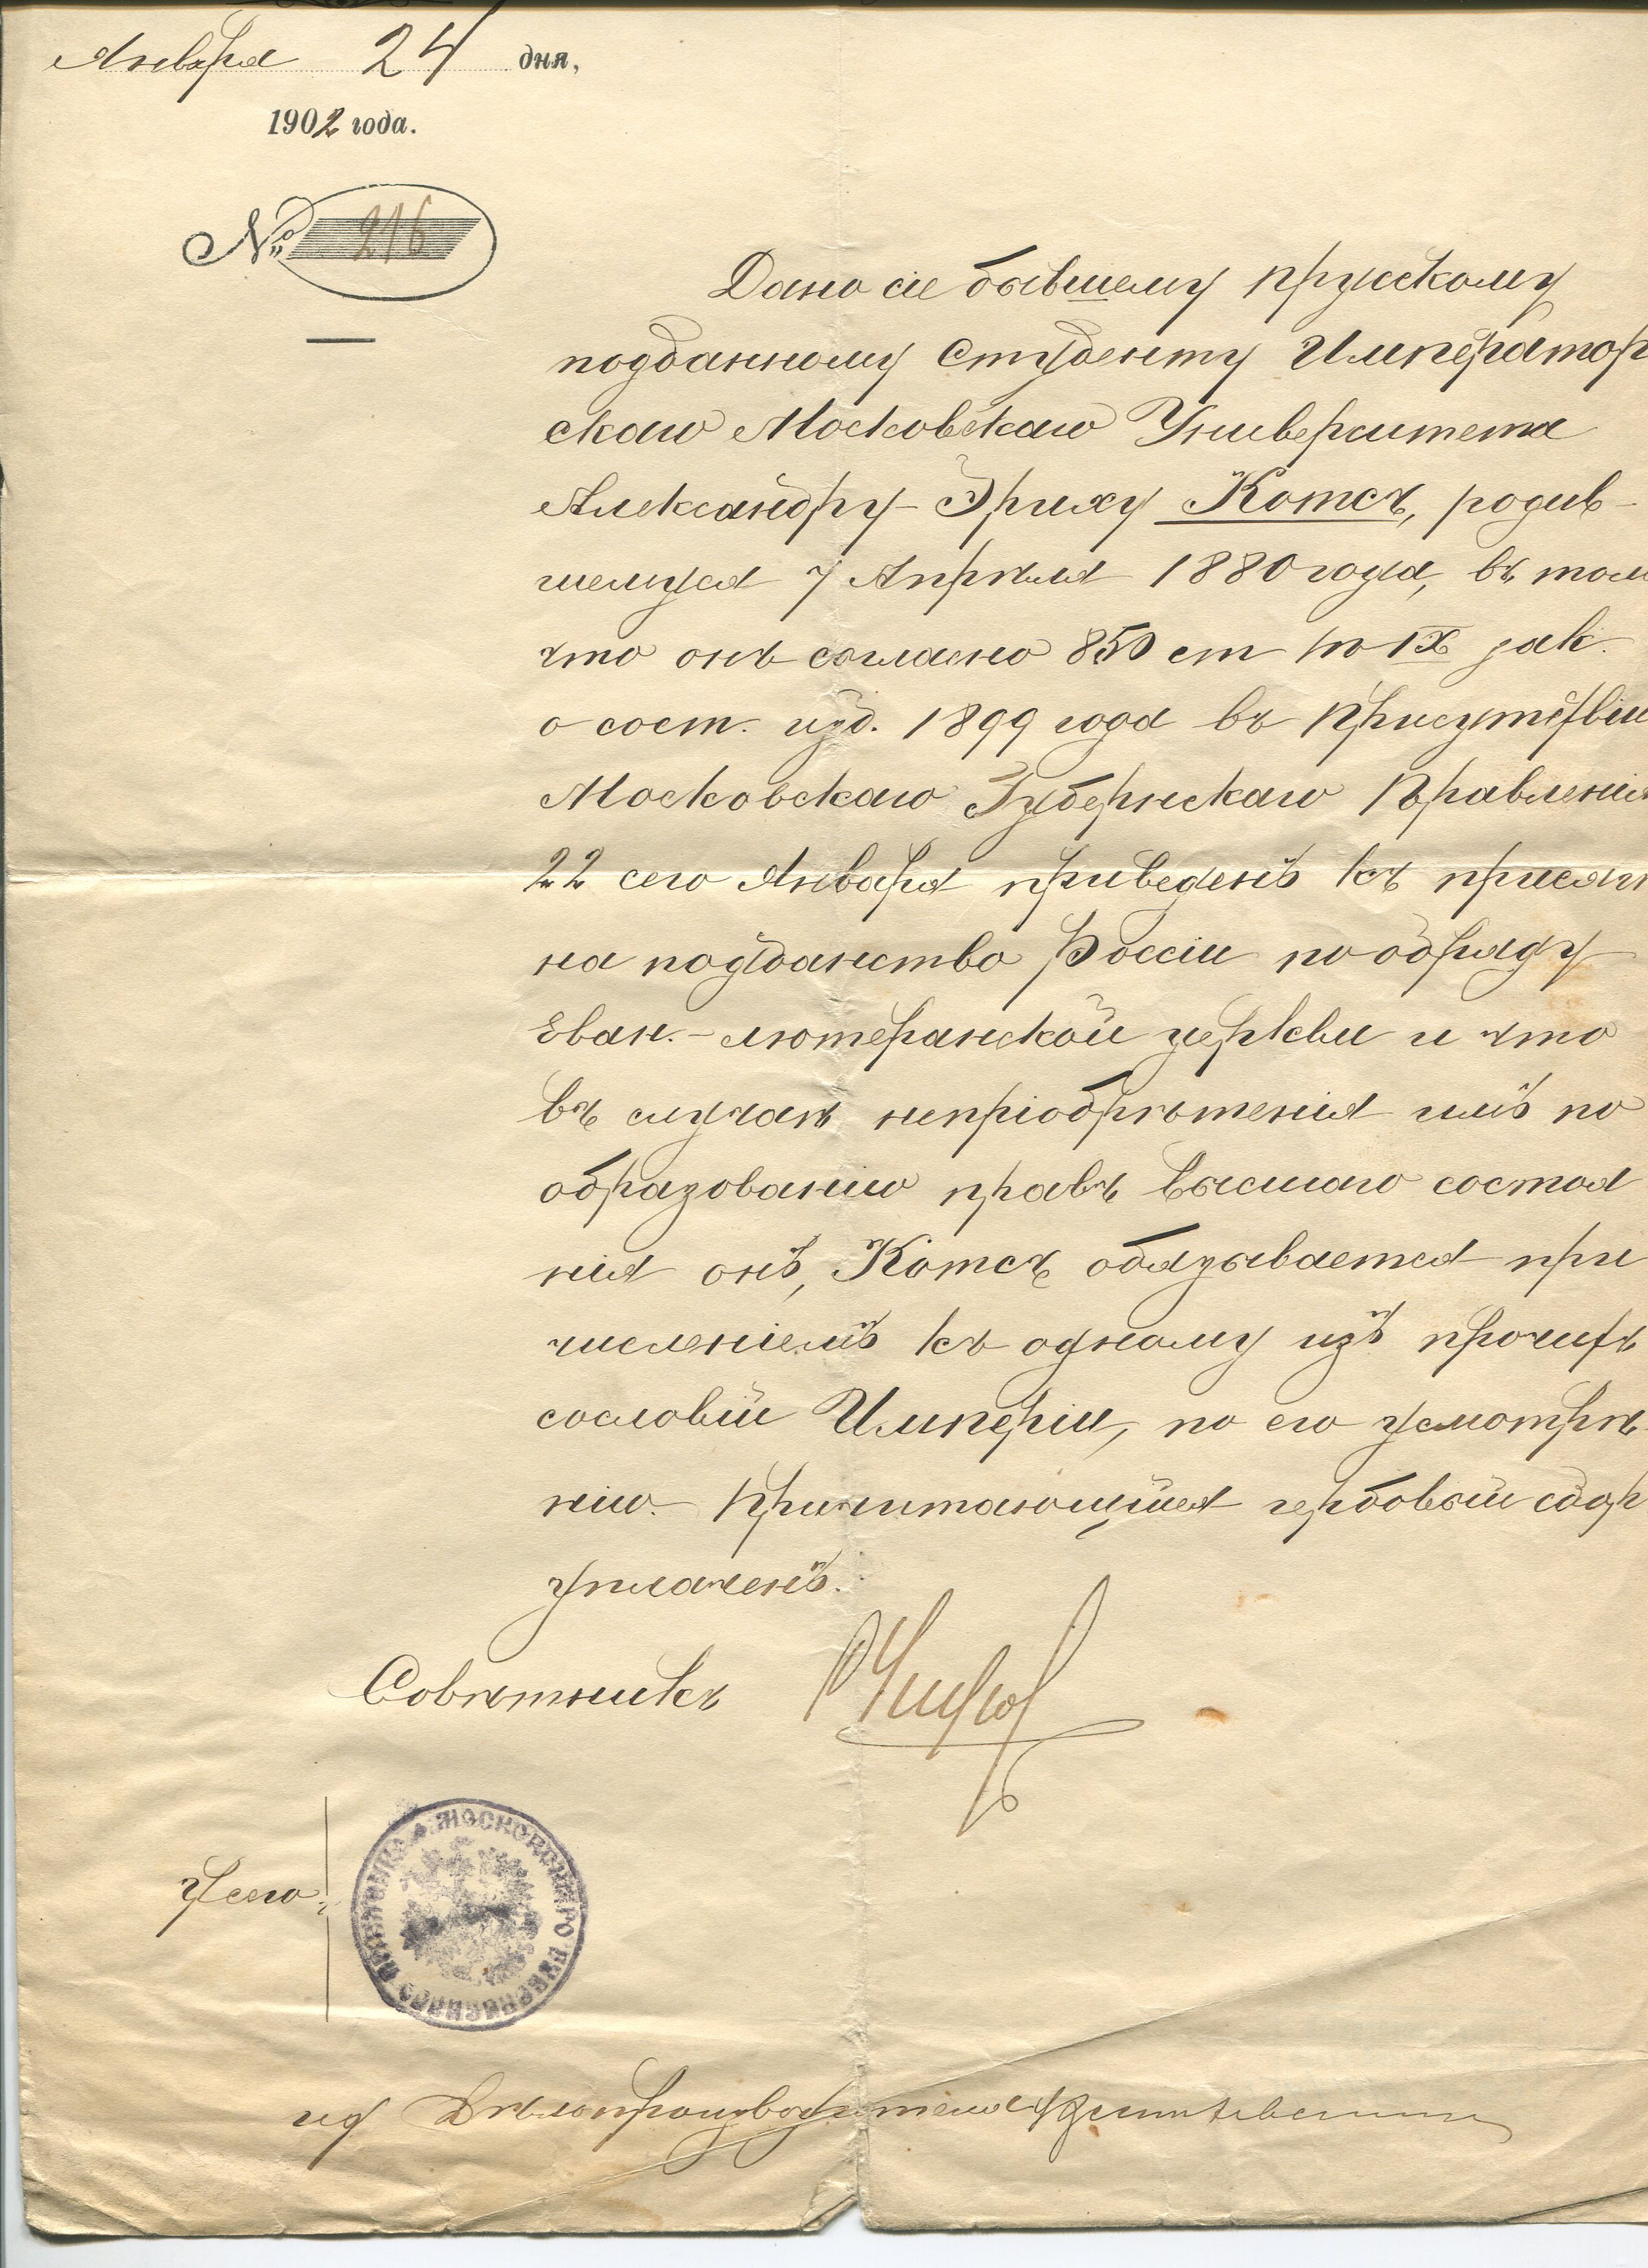 Января 24 дня,
1902 года.
№ 216
Дано сіе бывшему прусскому
подданному студенту Император
скаго Московскаго Университета
Александру-Эриху Котсъ, родив-
шемуся 7 Апрѣля 1880 года, въ том
что онъ согласно 850 ст т IX зак.
о сост. изд. 1899 года въ Присутствіи
Московскаго Губернскаго Правленія
22 сего Января приведенъ къ присяг
на подданство Россіи по обряду
Еван.-лютеранской церкви и что
въ случаѣ непріобрѣтенія имъ по
образованію правъ высшаго состоя
нія онъ, Котсъ обязывается при
численіемъ къ одному изъ прочихъ
сословій Имперіи, по его усмотрѣ-
нію. Причитающійся гербовый сбор
уплаченъ.
Совѣтникъ
У сего
МОСКОВСКАГО ГУБЕРНСКАГО ПРАВЛЕНІЯ
ид Дѣлопроизводителя